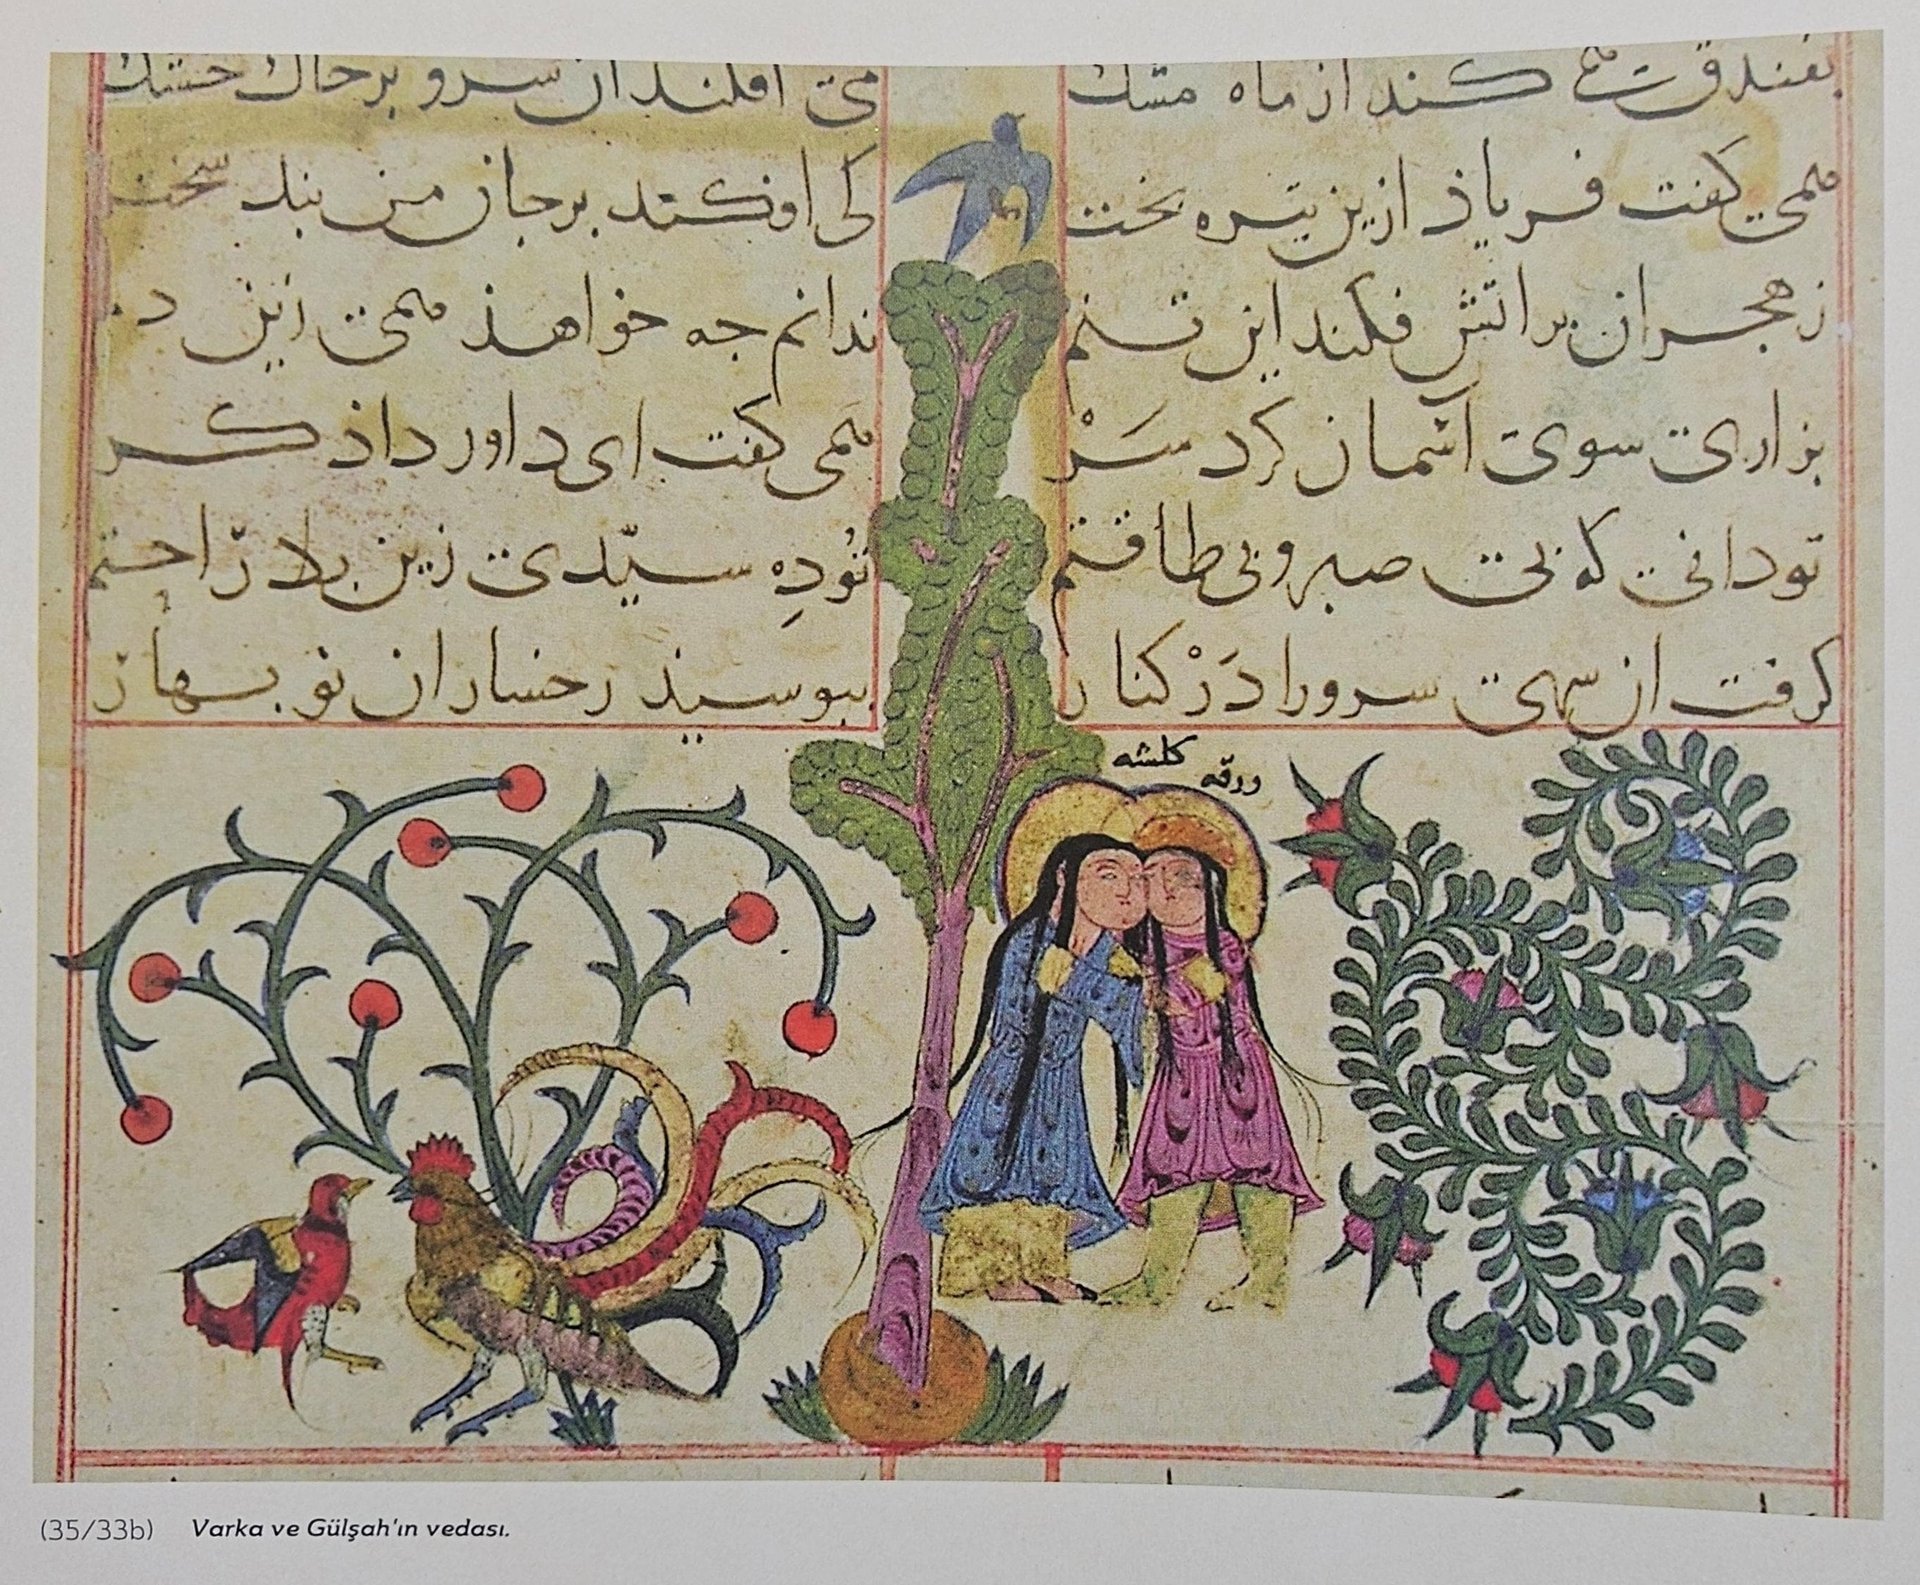 بفندق همی کند از ماه مشک می افکند از سرو بر خاک خشک
همی کفت فریاذ ازین تیره بخت کی او فکند بر جان من بند سخت
ز هجران بر اتش فکند این تنم ندانم جه خواهذ همی زین
بزاری سوی آسمان کرد سَرْ همی کفت ای داور داذ کر
تو دانی که بی صبر و بی طاقتم تُو دِه سیّدی زین بلا رّاحتم
کرفت ان سهی سرو را دَرْ کنار ببوسیذ رخسار ان نو بهار
کلشه
ورقه
(35/33b) Varka ve Gülşah'ın vedası.